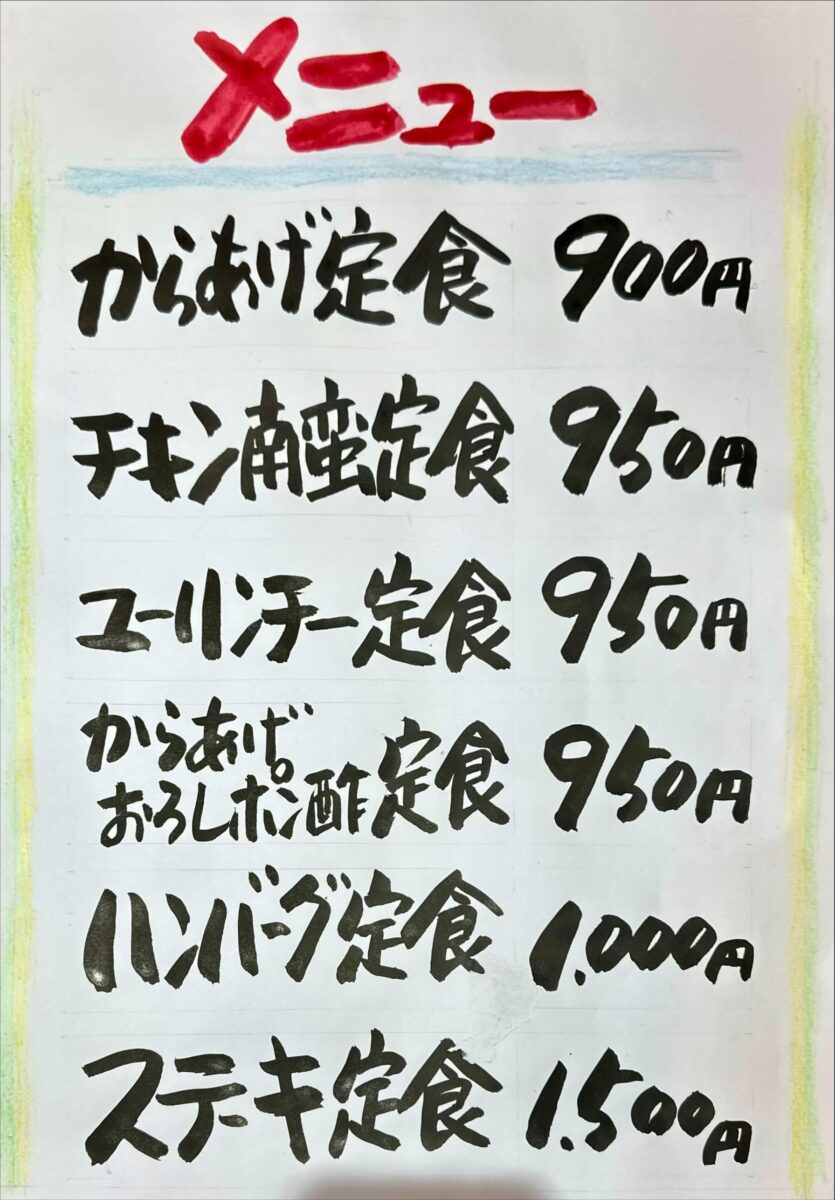 メニュー
からあげ定食 900円
チキン南蛮定食 950円
ユーリンチー定食 950円
からあげ
おろしポン酢定食 950円
ハンバーグ定食 1.000円
ステーキ定食 1.500円